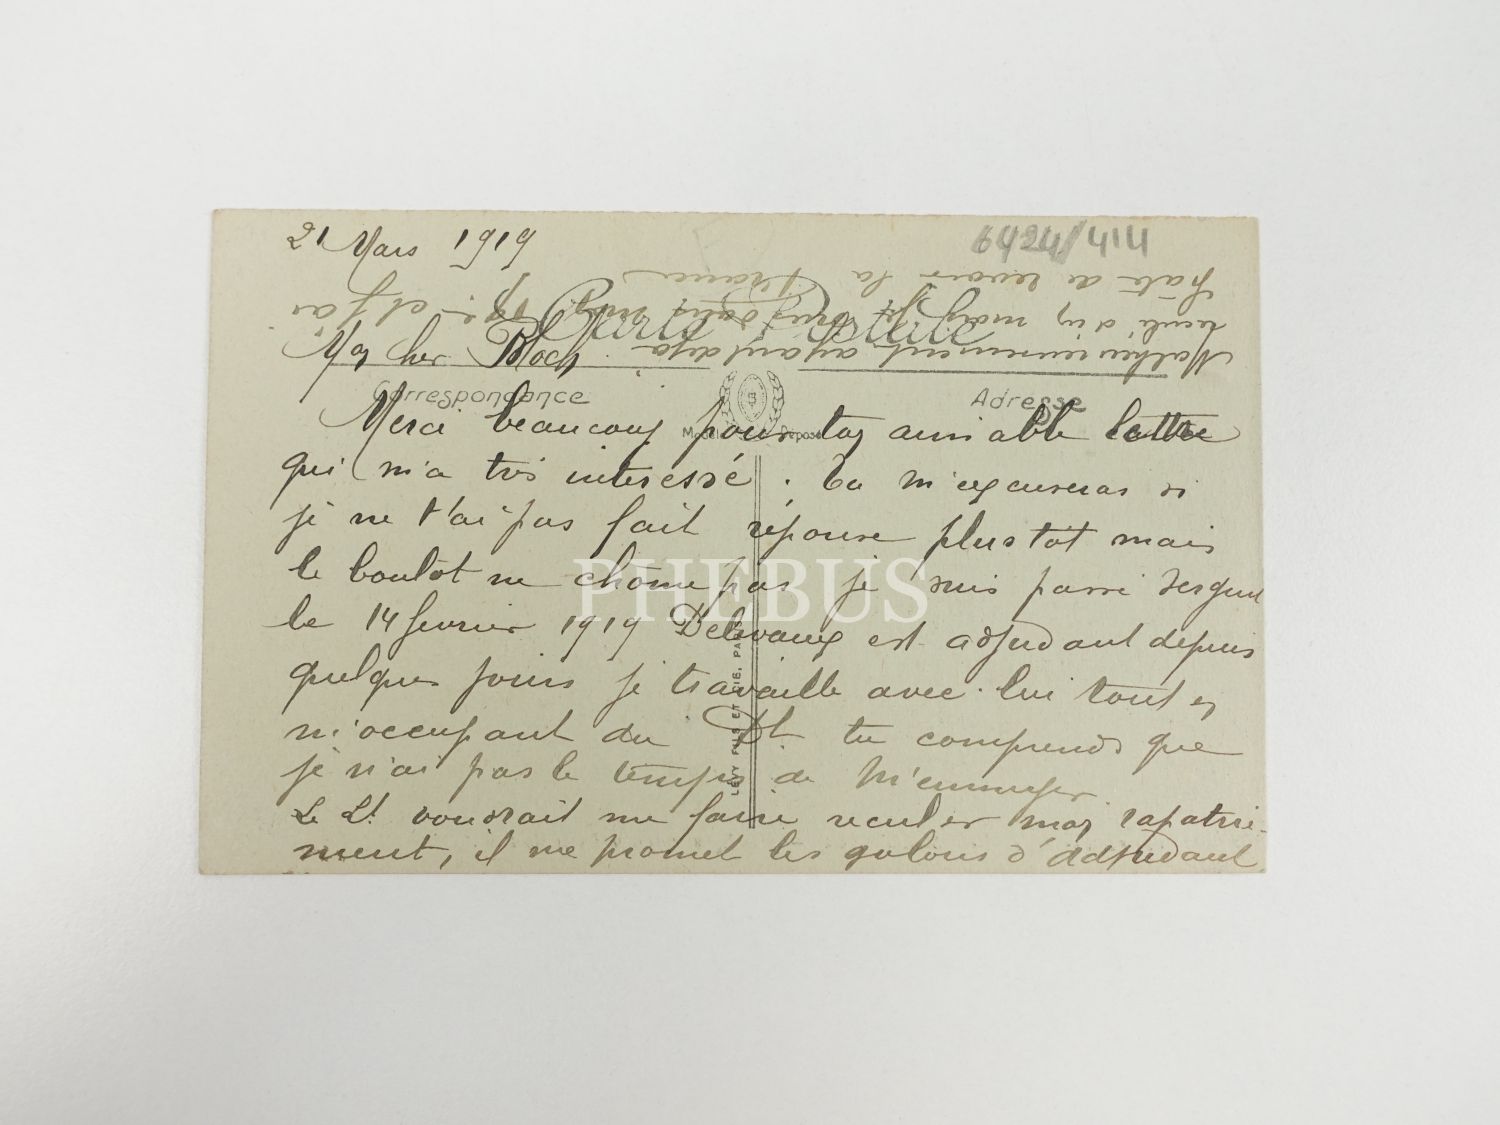 21 Mars 1919
6424/414
Carte Postale
Mon cher Bloch
Correspondance
Adresse
Modèle Déposé
Merci beaucoup pour ton aimable lettre
qui m'a très interessé. Tu m'excuseras si
je ne t'ai pas fait réponse plus tôt mais
le boulot ne chôme pas je suis passé Sergent
le 14 fevrier 1919 Delevaux est adjudant depuis
quelques jours je travaille avec lui tout en
m'occupant du Dt. tu comprends que
je n'ai pas le temps de m'ennuyer.
Le Lt voudrait me faire reculer mon rapatrie-
ment, il me promet les galons d'Adjudant
Malheureusement ayant deja
reculé d'un mois je suis
et j'ai
hâte de revoir la France
LÉVY FILS ET CIE, PARIS
PHEBUS